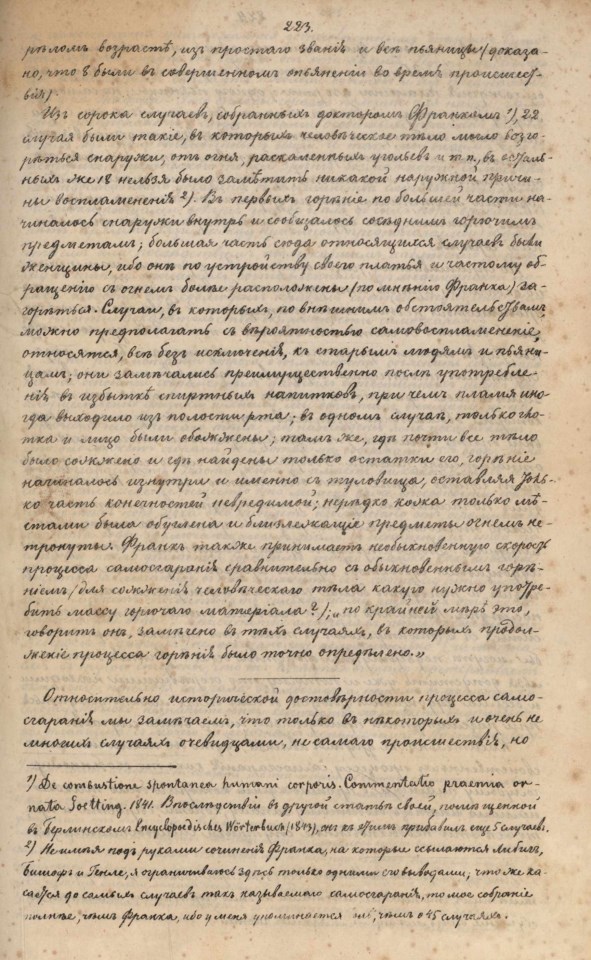 223.
рѣломъ возрастѣ, изъ простаго званія и всѣ пьяницы (доказа-
но, что 8 были въ совершенномъ опьяненіи во время происшест-
вія).
Изъ сорока случаевъ, собранныхъ докторомъ Франкомъ ¹), 22
случая были такіе, въ которыхъ человѣческое тѣло могло возго-
рѣться снаружи, отъ огня, раскаленныхъ угольевъ и т.п., въ осталь-
ныхъ же 18 нельзя было замѣтить никакой наружной причи-
ны воспламененія ²). Въ первыхъ горѣніе по большей части на-
чиналось снаружи внутрь и сообщалось сосѣднимъ горючимъ
предметамъ; большая часть сюда относящихся случаевъ были
женщины, ибо онѣ по устройству своего платья и частому об-
ращенію съ огнемъ болѣе расположены (по мнѣнію Франка) за-
горѣться. Случаи, въ которыхъ, по внѣшнимъ обстоятельствамъ
можно предполагать съ вѣроятностью самовоспламененіе,
относятся, всѣ безъ исключенія, къ старымъ людямъ и пьяни-
цамъ; они замѣчались преимущественно послѣ употребле-
нія въ избыткѣ спиртныхъ напитковъ, при чемъ пламя ино-
гда выходило изъ полости рта; въ одномъ случаѣ, только гло-
тка и лицо были обожжены; тамъ же, гдѣ почти все тѣло
было сожжено и гдѣ найдены только остатки его, горѣніе
начиналось изнутри и именно съ туловища, оставляя толь-
ко часть конечностей невредимой; нерѣдко кожа только мѣ-
стами была обуглена и близлежащіе предметы огнемъ не-
тронуты. Франкъ также принимаетъ необыкновенную скорость
процесса самосгаранія сравнительно съ обыкновеннымъ горѣ-
ніемъ (для сожженія человѣческаго тѣла какую нужно употре-
бить массу горючаго матеріала?); „по крайней мѣрѣ это,
говоритъ онъ, замѣчено въ тѣхъ случаяхъ, въ которыхъ продол-
женіе процесса горѣнія было точно опредѣлено.„
Относительно исторической достовѣрности процесса само-
сгаранія мы замѣчаемъ, что только въ нѣкоторыхъ и очень не
многихъ случаяхъ очевидцами, не самаго происшествія, но
¹) De combustione spontanea humani corporis. Commentatio praemia or-
nata Goetting. 1841. Впослѣдствіи въ другой статьѣ своей, помѣщенной
въ Берлинскомъ Encyclopädisches Wörterbuch (1843), онъ къ этимъ прибавилъ еще 5 случаевъ.
²) Не имѣя подъ руками сочиненія Франка, на которые ссылаются Либихъ,
Бишофъ и Генле, я ограничиваюсь здѣсь только одними его выводами; что же ка-
сается до самыхъ случаевъ такъ называемаго самосгаранія, то мое собраніе
полнѣе, чѣмъ Франка, ибо у меня упоминается чѣмъ о 45 случаяхъ.